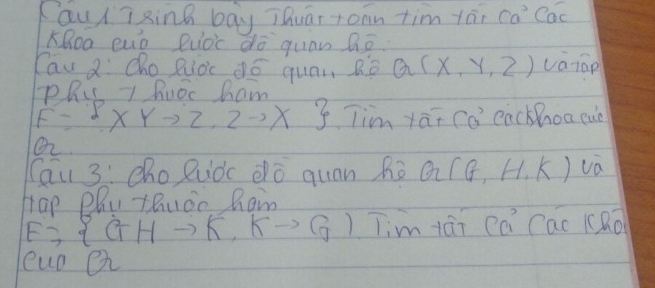 Câu 1. Trình bày Thuật toán tìm tất cả các
Khoá của lược đồ quan hệ.
Câu 2: Cho lược đồ quan hệ Q(X, Y, Z) và tập
phụ thuộc hàm
F = { XY → Z, Z → X }. Tìm tất cả các khoá của
Q.
Câu 3: Cho lược đồ quan hệ Q(G, H, K) và
tập phụ thuộc hàm
F = { GH → K, K → G ) Tìm tất cả các Khoá
của Q